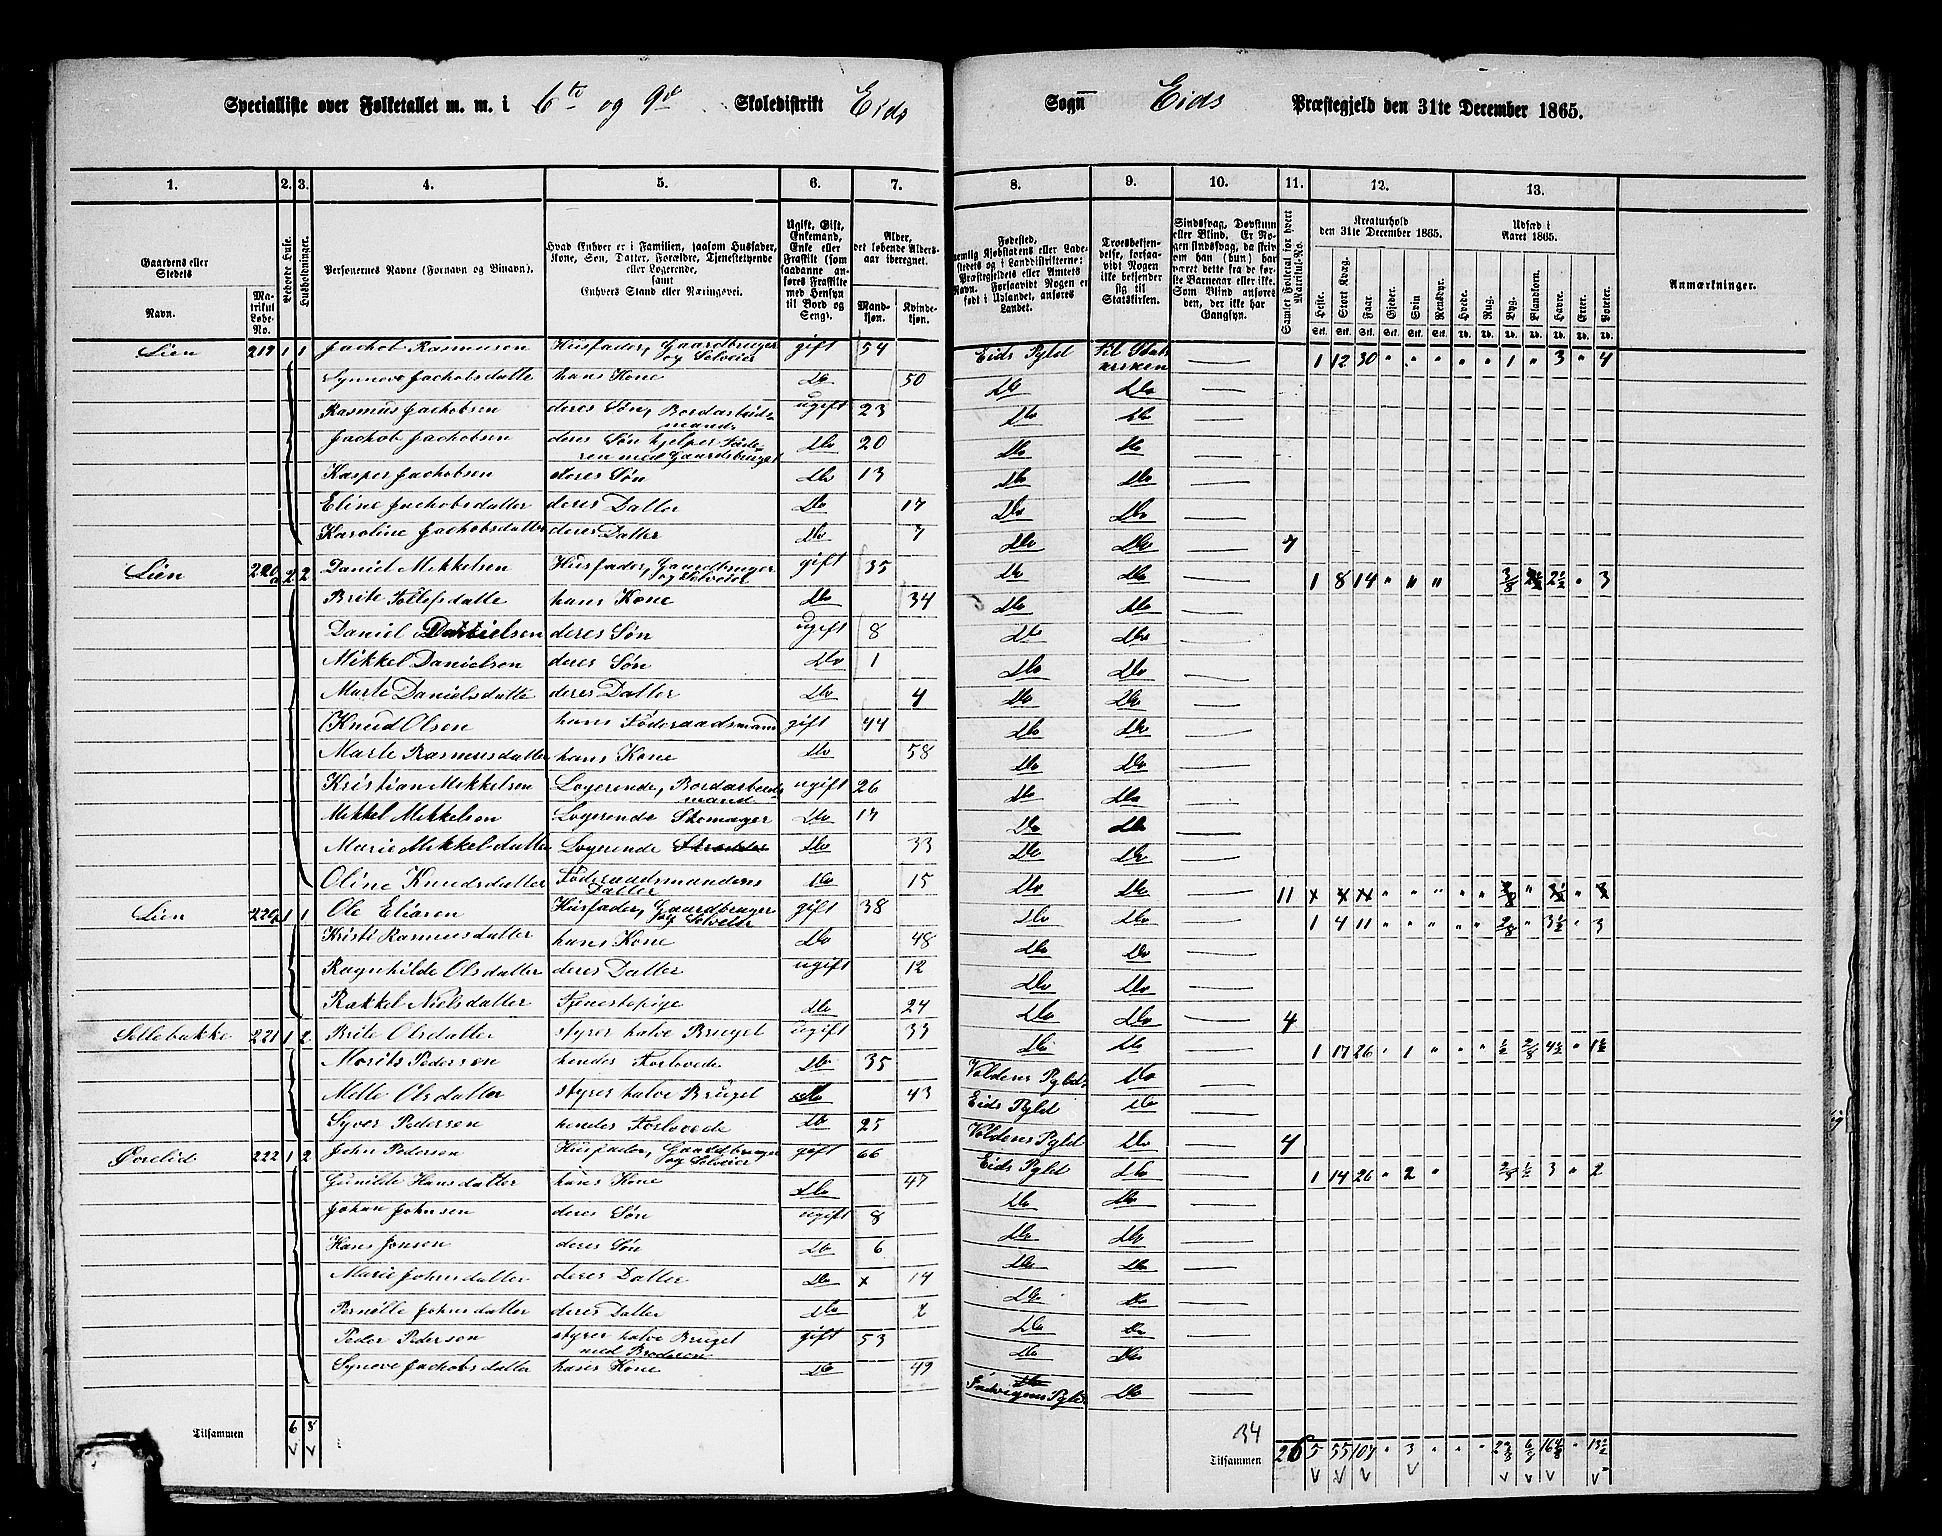 Specialliste over Folketallet m. m. i 6te og 9de Skoledistrikt Eids Sogn Eids Præstegjeld den 31te December 1865.
1. 2. 3. 4. 5. 6. 7. 8. 9. 10. 11. 12. 13.
Gaardens eller Stedets
Navn.
Matrikul Løbe-No.
Beboede Huse.
Husholdninger.
Personernes Navne (Fornavn og Binavn).
Hvad Enhver er i Familien, saasom Husfader, Kone, Søn, Datter, Forældre, Tjenestetyende eller Logerende, samt Enhvers Stand eller Næringsvei.
Ugift, Gift, Enkemand, Enke eller Fraskilt (som saadanne anføres Fraskilte med Hensyn til Bord og Seng).
Alder, det løbende Aldersaar iberegnet.
Mandkjøn.
Kvindekjøn.
Troesbekjendelse, forsaavidt Nogen ikke bekjender sig til Statskirken.
Samlet Folketal for hvert Matrikul-No.
Kreaturhold den 31te December 1865.
Heste. Stort Kvæg. Faar. Gjeder. Svin Rensdyr.
Udsæd i Aaret 1865.
Hvede. Rug. Byg. Blandkorn. Havre. Erter. Poteter.
Anmærkninger.
Lien 219 1 1 Jachob Rasmusen Husfader, Gaardbruger og Selveier gift 54 Eids Pgld Til Stats kirken 1 12 30 " " " " " 1 " 3 " 4
Synneve Jachobsdatte hans Kone Do 50 Do Do
Rasmus Jachobsen deres Søn, Bordarbeidsmand ugift 23 Do Do
Jachob Jachobsen deres Søn hjelper Faderen med Gaardsbruget Do 20 Do Do
Kasper Jachobsen deres Søn Do 13 Do Do
Eline Jachobsdatter deres Datter Do 17 Do Do
Karoline Jachobsdatter deres Datter Do 7 Do Do 7
Lien 220a 2 2 Daniel Mikkelsen Husfader, Gaardbruger og Selveier gift 35 Do Do 1 8 14 " " " 3/8 2½ " 3
Brite Tollefsdatte hans Kone Do 34 Do Do
Daniel Danielsen deres Søn ugift 8 Do Do
Mikkel Danielsen deres Søn Do 1 Do Do
Marte Danielsdatte deres Datter Do 4 Do Do
Knud Olsen hans Föderaadsmand gift 44 Do Do
Marte Rasmusdatter hans Kone Do 58 Do Do
Kristian Mikkelsen Logerende, Bordarbeidsmand ugift 26 Do Do
Mikkel Mikkelsen Logerende Skomager Do 17 Do Do
Marie Mikkelsdatter Logerende Do 33 Do Do
Oline Knudsdatter Föderaadsmandens Datter Do 15 Do Do 11
Lien 220 1 1 Ole Eliasen Husfader, Gaardbruger og Selveier gift 38 Do Do 1 4 11 " " " " " 2/8 " 3½ " 3
Kristi Rasmusdatter hans Kone Do 48 Do Do
Ragnhilde Olsdatter deres Datter ugift 12 Do Do
Rakkel Nielsdatter Tjenestepige Do 24 Do Do 4
Sellebakke 221 1 2 Brite Olsdatter styrer halve Bruget ugift 33 Do Do 1 17 26 " 1 " " " ½ 2/8 4½ " 1½
Morits Pedersen hendes Forlovede Do 35 Voldens Pgld Do
Mette Olsdatter styrer halve Bruget Do 43 Eids Pgld Do
Syver Pedersen hendes Forlovede Do 25 Voldens Pgld Do 4
Øvrelid 222 1 2 John Pedersen Husfader, Gaardbruger og Selveier gift 66 Eids Pgld Do 1 14 26 " 2 " ½ 3 " 2
Gunilde Hansdatter hans Kone Do 47 Do Do
Johan Johnsen deres Søn ugift 8 Do Do
Hans Jonson deres Søn Do 6 Do Do
Marie Johnsdatter deres Datter Do x 14 Do Do
Pernille Johnsdatter deres Datter Do 2 Do Do
Peder Pederson styrer halve Bruget med Broderen gift 53 Do Do
Synove Jachobsdatter hans Kone Do 49 Indvigens Pgld Do
Tilsammen 6 8
34
Tilsammen 26 5 55 107 " 3 " " "